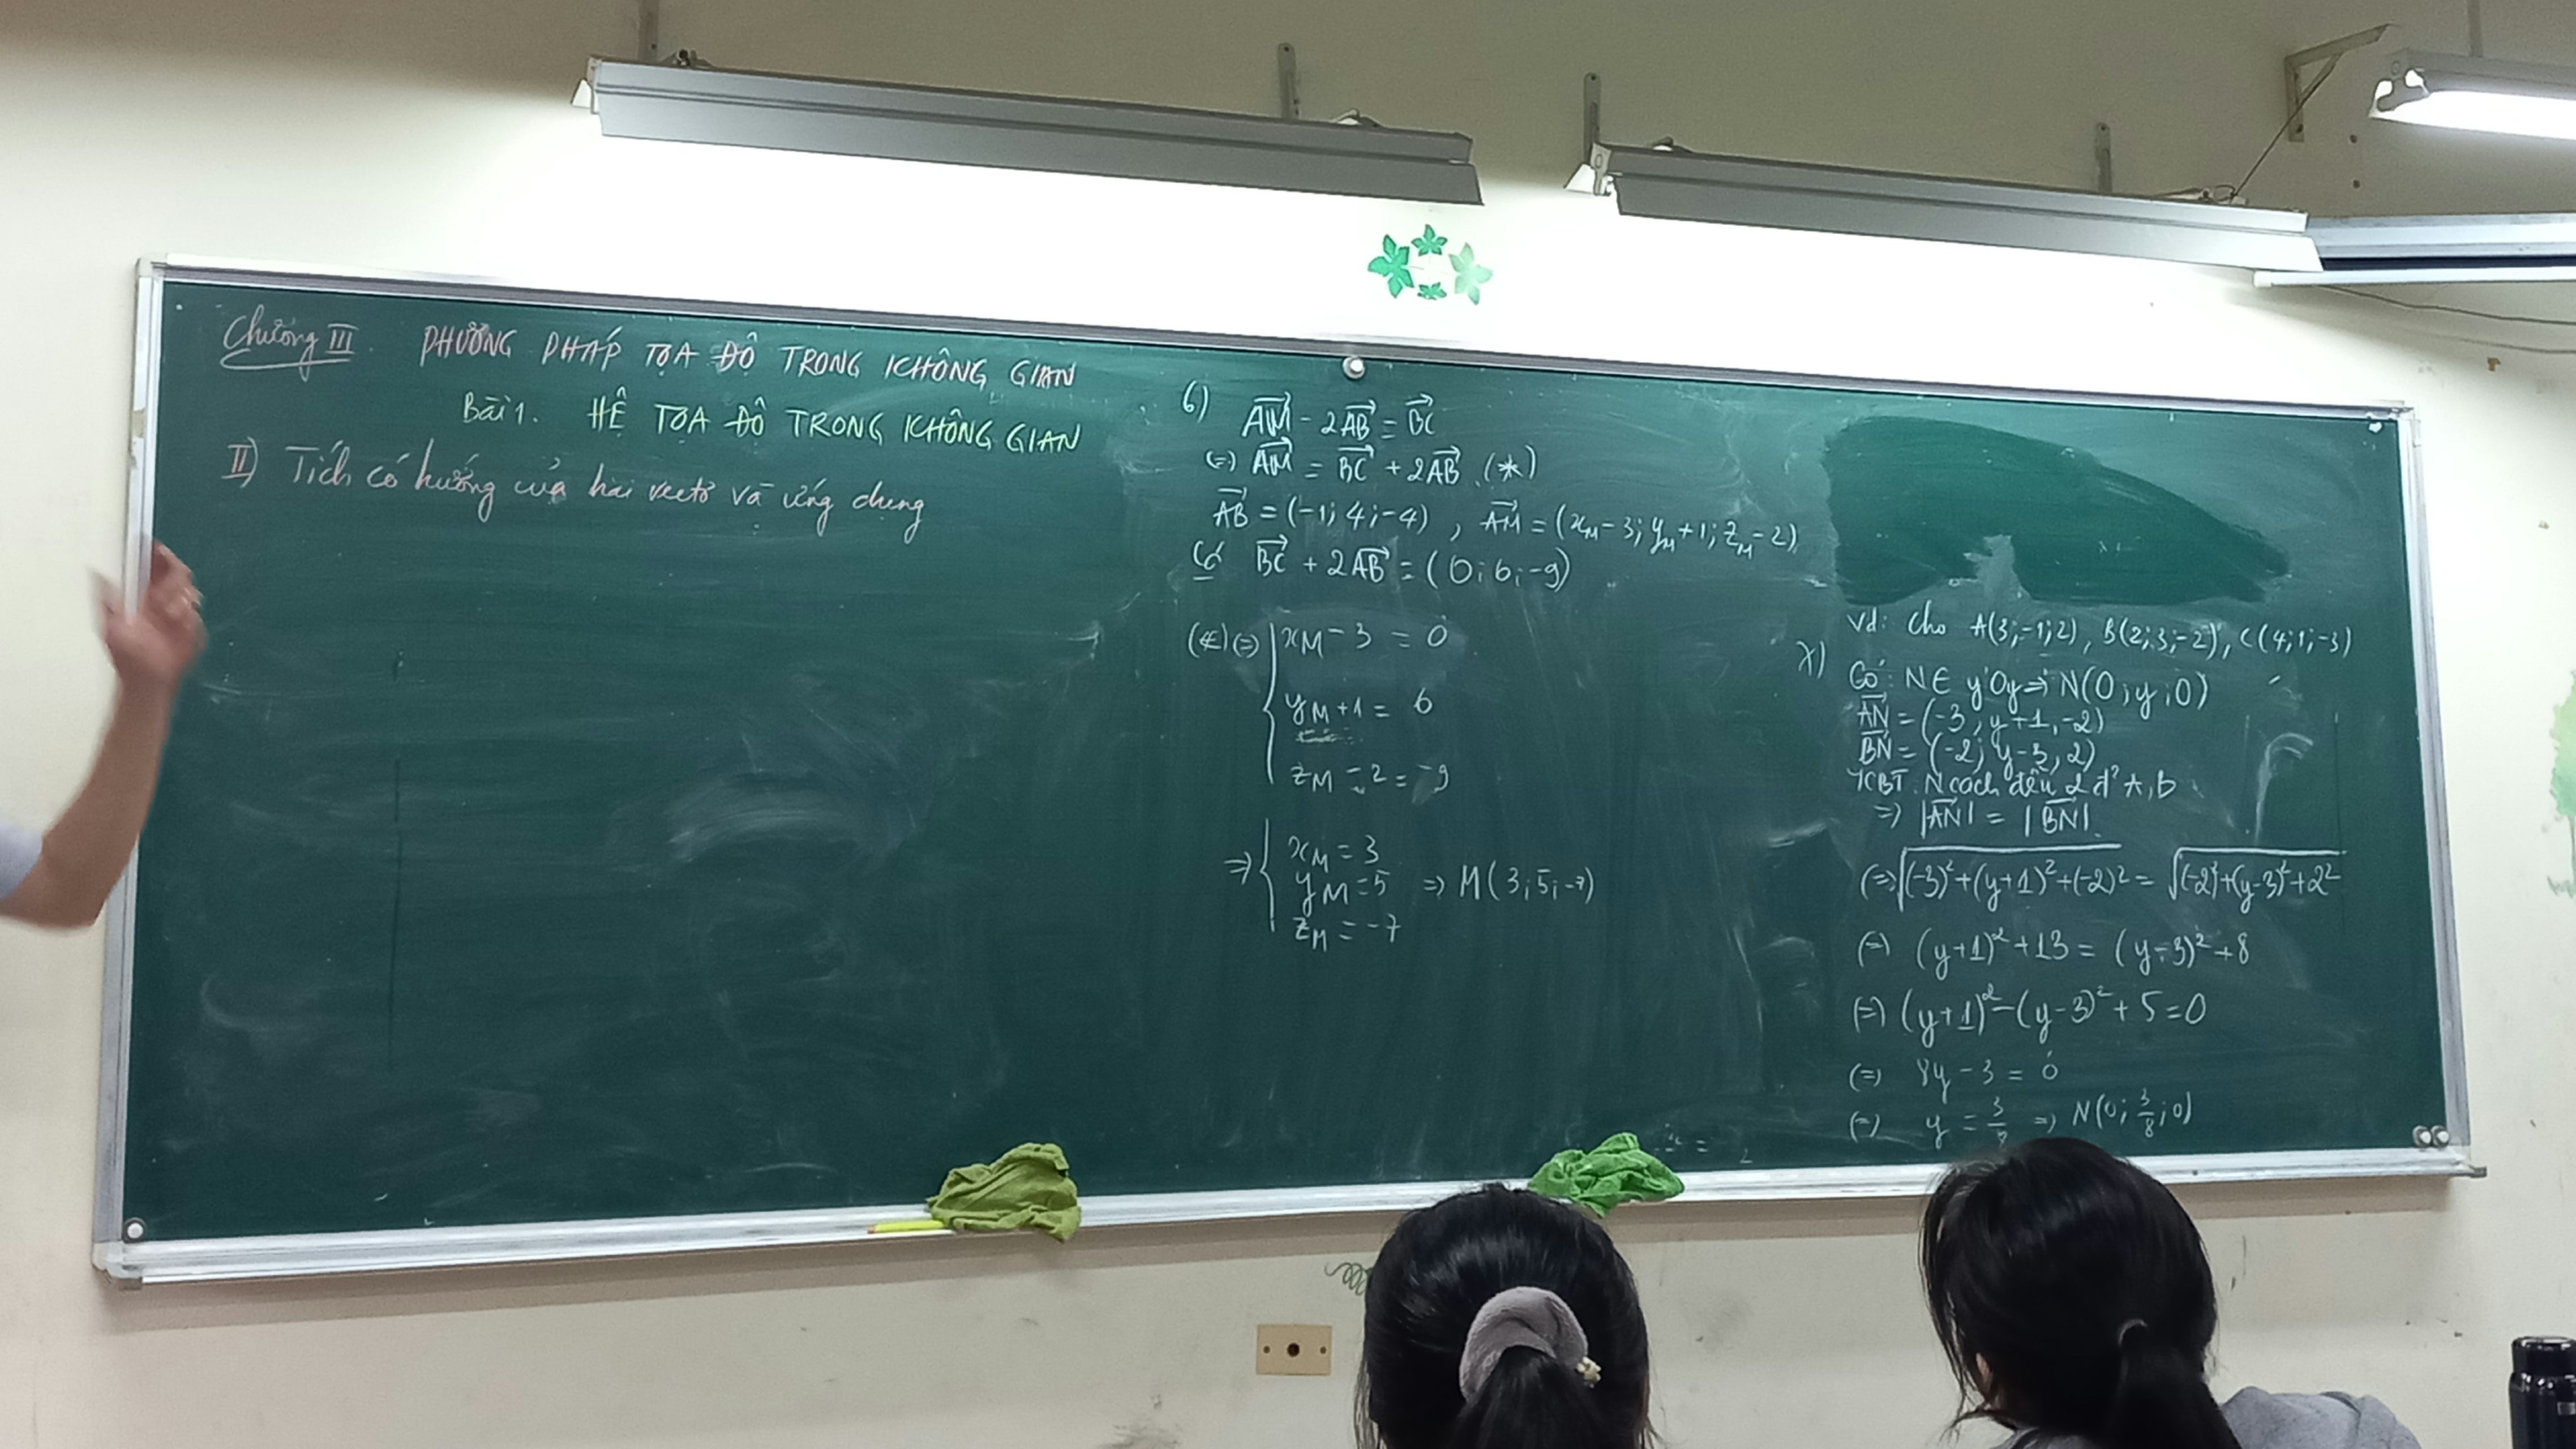 Chương III. PHƯƠNG PHÁP TỌA ĐỘ TRONG KHÔNG GIAN
Bài 1. HỆ TỌA ĐỘ TRONG KHÔNG GIAN
II) Tích có hướng của hai vectơ và ứng dụng
6) AM→ - 2AB→ = BC→
(=) AM→ = BC→ + 2AB→ (*)
AB→ = (-1; 4; -4) , AM→ = (x_M - 3; y_M + 1; z_M - 2)
Có BC→ + 2AB→ = (0; 6; -9)
(*) (=) { x_M - 3 = 0
y_M + 1 = 6
z_M - 2 = -9
=> { x_M = 3
y_M = 5 => M(3; 5; -7)
z_M = -7
Vd: Cho A(3; -1; 2), B(2; 3; -2), C(4; 1; -3)
7) Có: N ∈ y'Oy => N(0; y; 0)
AN→ = (-3; y+1; -2)
BN→ = (-2; y-3; 2)
YCBT. N cách đều 2 đ' A, B
=> |AN→| = |BN→|.
(=) √((-3)² + (y+1)² + (-2)²) = √((-2)² + (y-3)² + 2²)
(=) (y+1)² + 13 = (y-3)² + 8
(=) (y+1)² - (y-3)² + 5 = 0
(=) 8y - 3 = 0
(=) y = 3/8 => N(0; 3/8; 0)